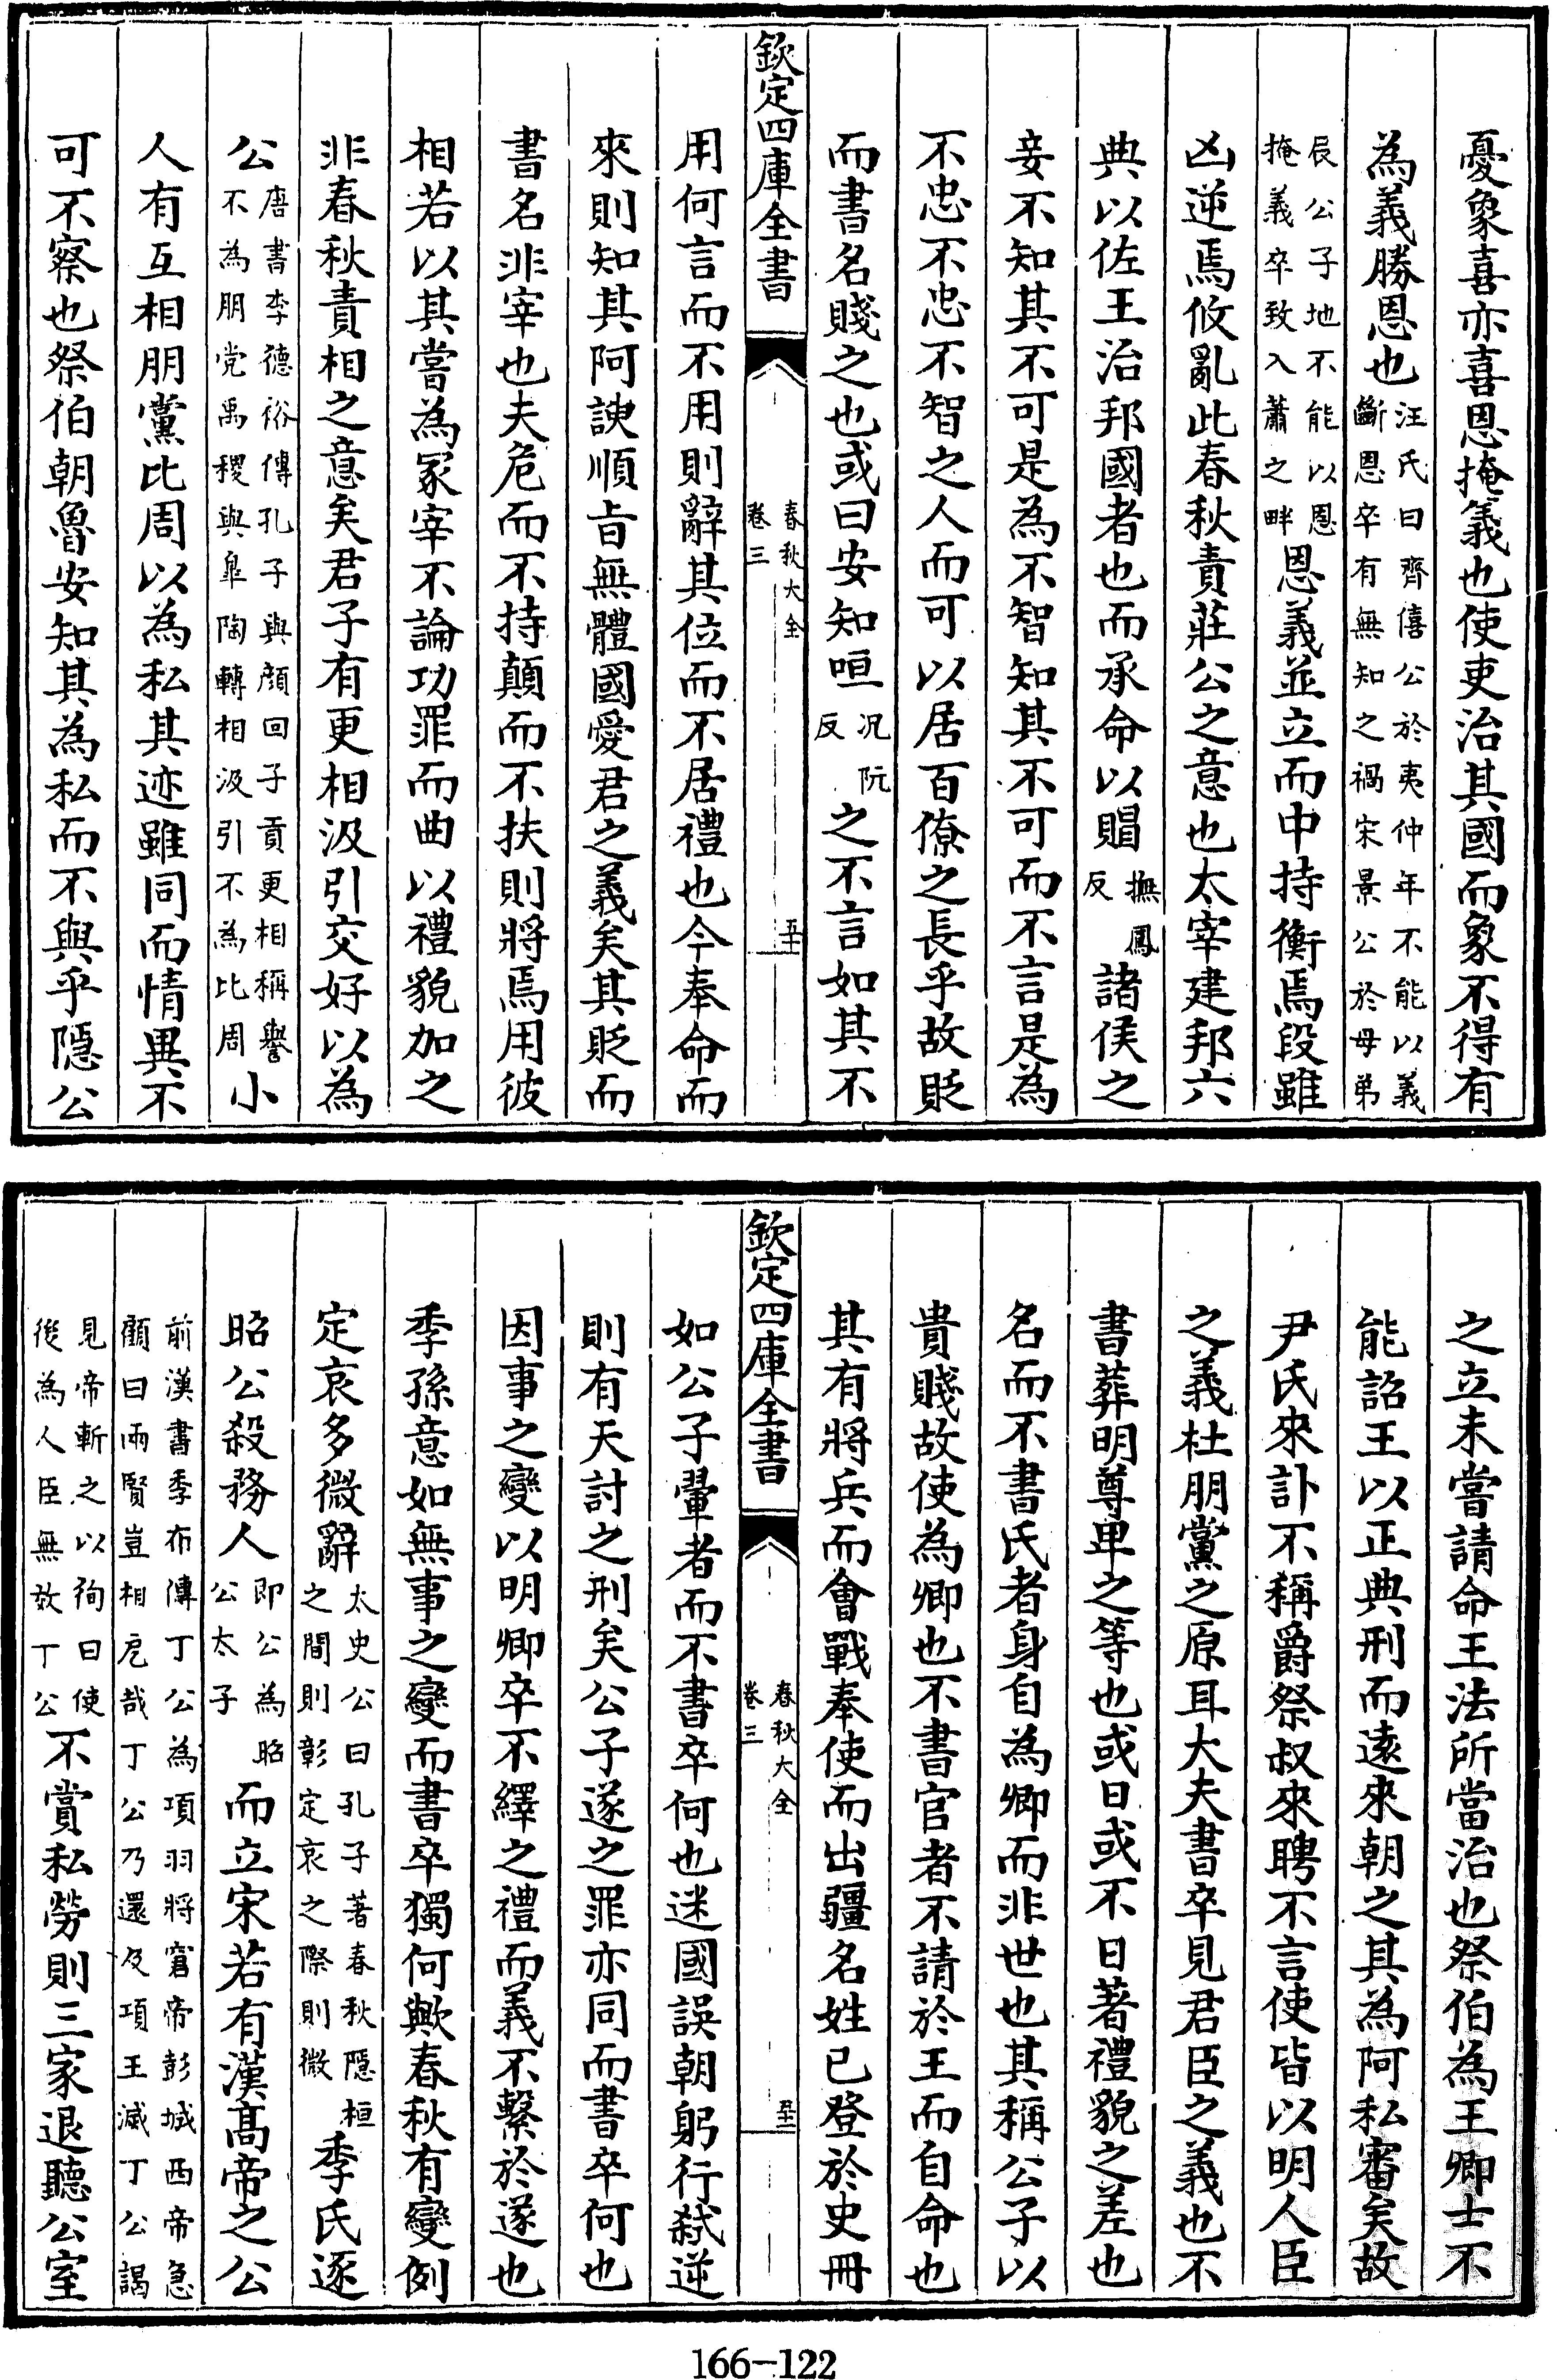 憂象喜亦喜恩掩義也使吏治其國而象不得有
為義勝恩也汪氏曰齊僖公於夷仲年不能以義斷恩卒有無知之禍宋景公於母弟
辰公子地不能以恩掩義卒致入蕭之畔恩義並立而中持衡焉段雖
凶逆焉攸亂此春秋責莊公之意也太宰建邦六
典以佐王治邦國者也而承命以賵撫鳳反諸侯之
妾不知其不可是為不智知其不可而不言是為
不忠不忠不智之人而可以居百僚之長乎故貶
而書名賤之也或曰安知咺况阮反之不言如其不
欽定四庫全書
春秋大全
卷三
五十
用何言而不用則辭其位而不居禮也今奉命而
來則知其阿諛順旨無體國愛君之義矣其貶而
書名非宰也夫危而不持顛而不扶則將焉用彼
相若以其嘗為冢宰不論功罪而曲以禮貌加之
非春秋責相之意矣君子有更相汲引交好以為
公唐書李德裕傳孔子與顔回子貢更相稱譽不為朋党禹稷與臯陶轉相汲引不為比周小
人有互相朋黨比周以為私其迹雖同而情異不
可不察也祭伯朝魯安知其為私而不與乎隱公
之立未嘗請命王法所當治也祭伯為王卿士不
能詔王以正典刑而逺來朝之其為阿私審矣故
尹氏來訃不稱爵祭叔來聘不言使皆以明人臣
之義杜朋黨之原耳大夫書卒見君臣之義也不
書葬明尊卑之等也或日或不日著禮貌之差也
名而不書氏者身自為卿而非世也其稱公子以
貴賤故使為卿也不書官者不請於王而自命也
其有將兵而會戰奉使而出疆名姓已登於史冊
欽定四庫全書
春秋大全
卷三
如公子翬者而不書卒何也迷國誤朝躬行弑逆
則有天討之刑矣公子遂之罪亦同而書卒何也
因事之變以明卿卒不繹之禮而義不繫於遂也
季孫意如無事之變而書卒獨何歟春秋有變例
定哀多微辭太史公曰孔子著春秋隱桓之間則彰定哀之際則微季氏逐
昭公殺務人即公為昭公太子而立宋若有漢高帝之公
前漢書季布傳丁公為項羽將窘帝彭城西帝急顧曰兩賢豈相戹哉丁公乃還及項王滅丁公謁
見帝斬之以徇曰使後為人臣無效丁公不賞私勞則三家退聽公室
166-122